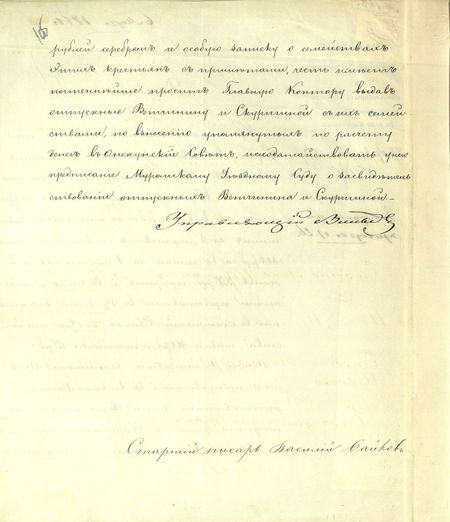 рублей серебромъ и особую записку о семействахъ
этихъ крестьянъ съ примѣтами, честь имѣетъ
почтеннѣйше проситъ Главную Контору выдавъ
отпускные Ветчинину и Скуришной съ ихъ семей
ствами, по внесению упомянутыхъ по расчету
денег въ Опекунскій Совѣтъ, исходатайствовать у него
предписаніе Муромскому Уѣздному Суду о засвидѣтель
ствовании отпускныхъ Ветчинина и Скуришной.
Управляющій
Старшій писарь Василій Сайковъ